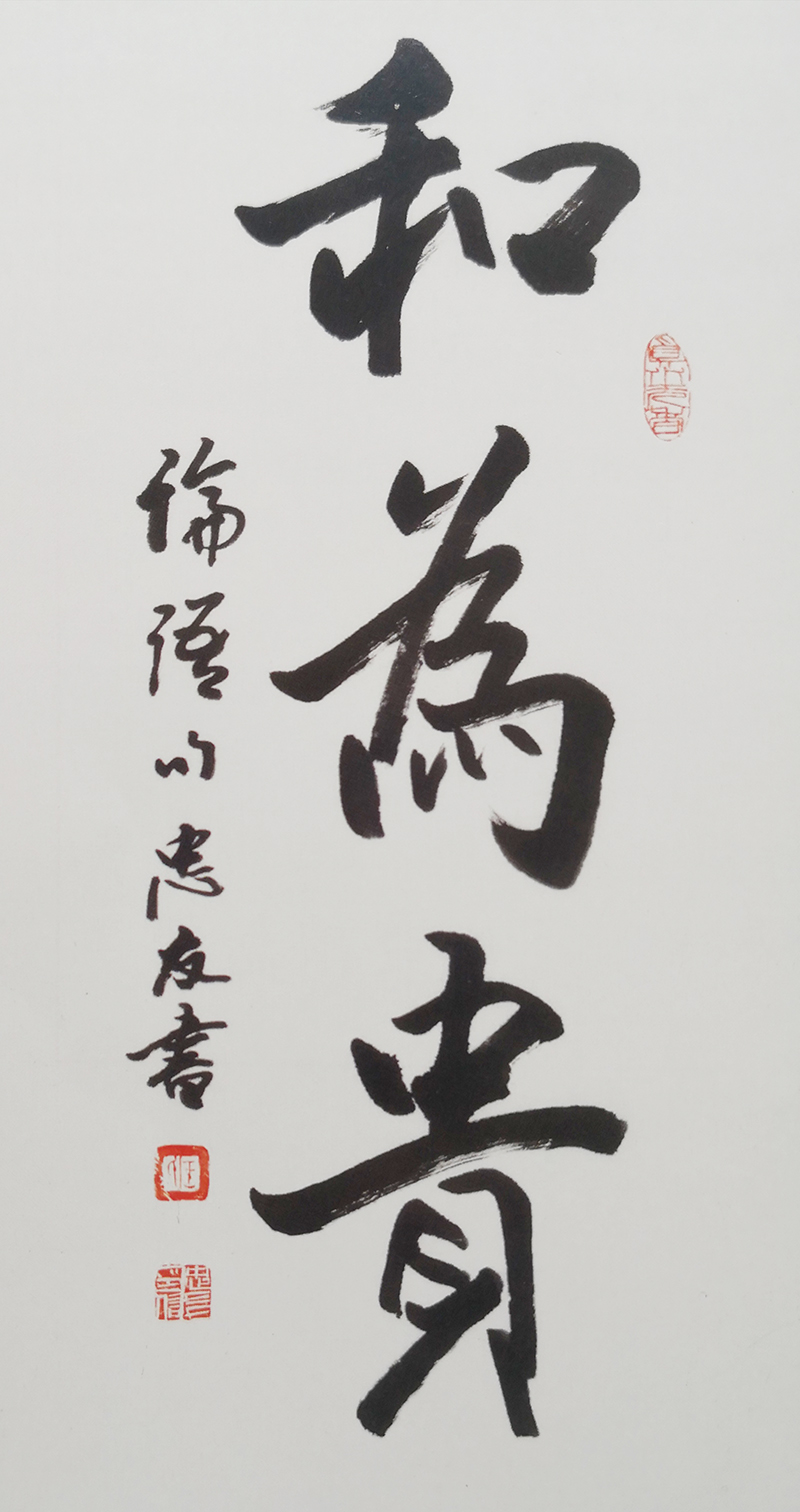 和為貴
論語句忠友書